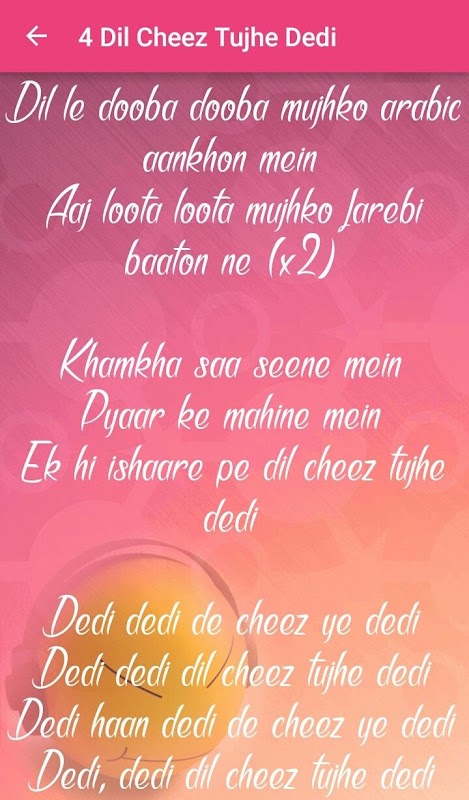 4 Dil Cheez Tujhe Dedi
Dil le dooba dooba mujhko arabic
aankhon mein
Aaj loota loota mujhko farebi
baaton ne (x2)
Khamkha saa seene mein
Pyaar ke mahine mein
Ek hi ishaare pe dil cheez tujhe
dedi
Dedi dedi de cheez ye dedi
Dedi dedi dil cheez tujhe dedi
Dedi haan dedi de cheez ye dedi
Dedi, dedi dil cheez tujhe dedi